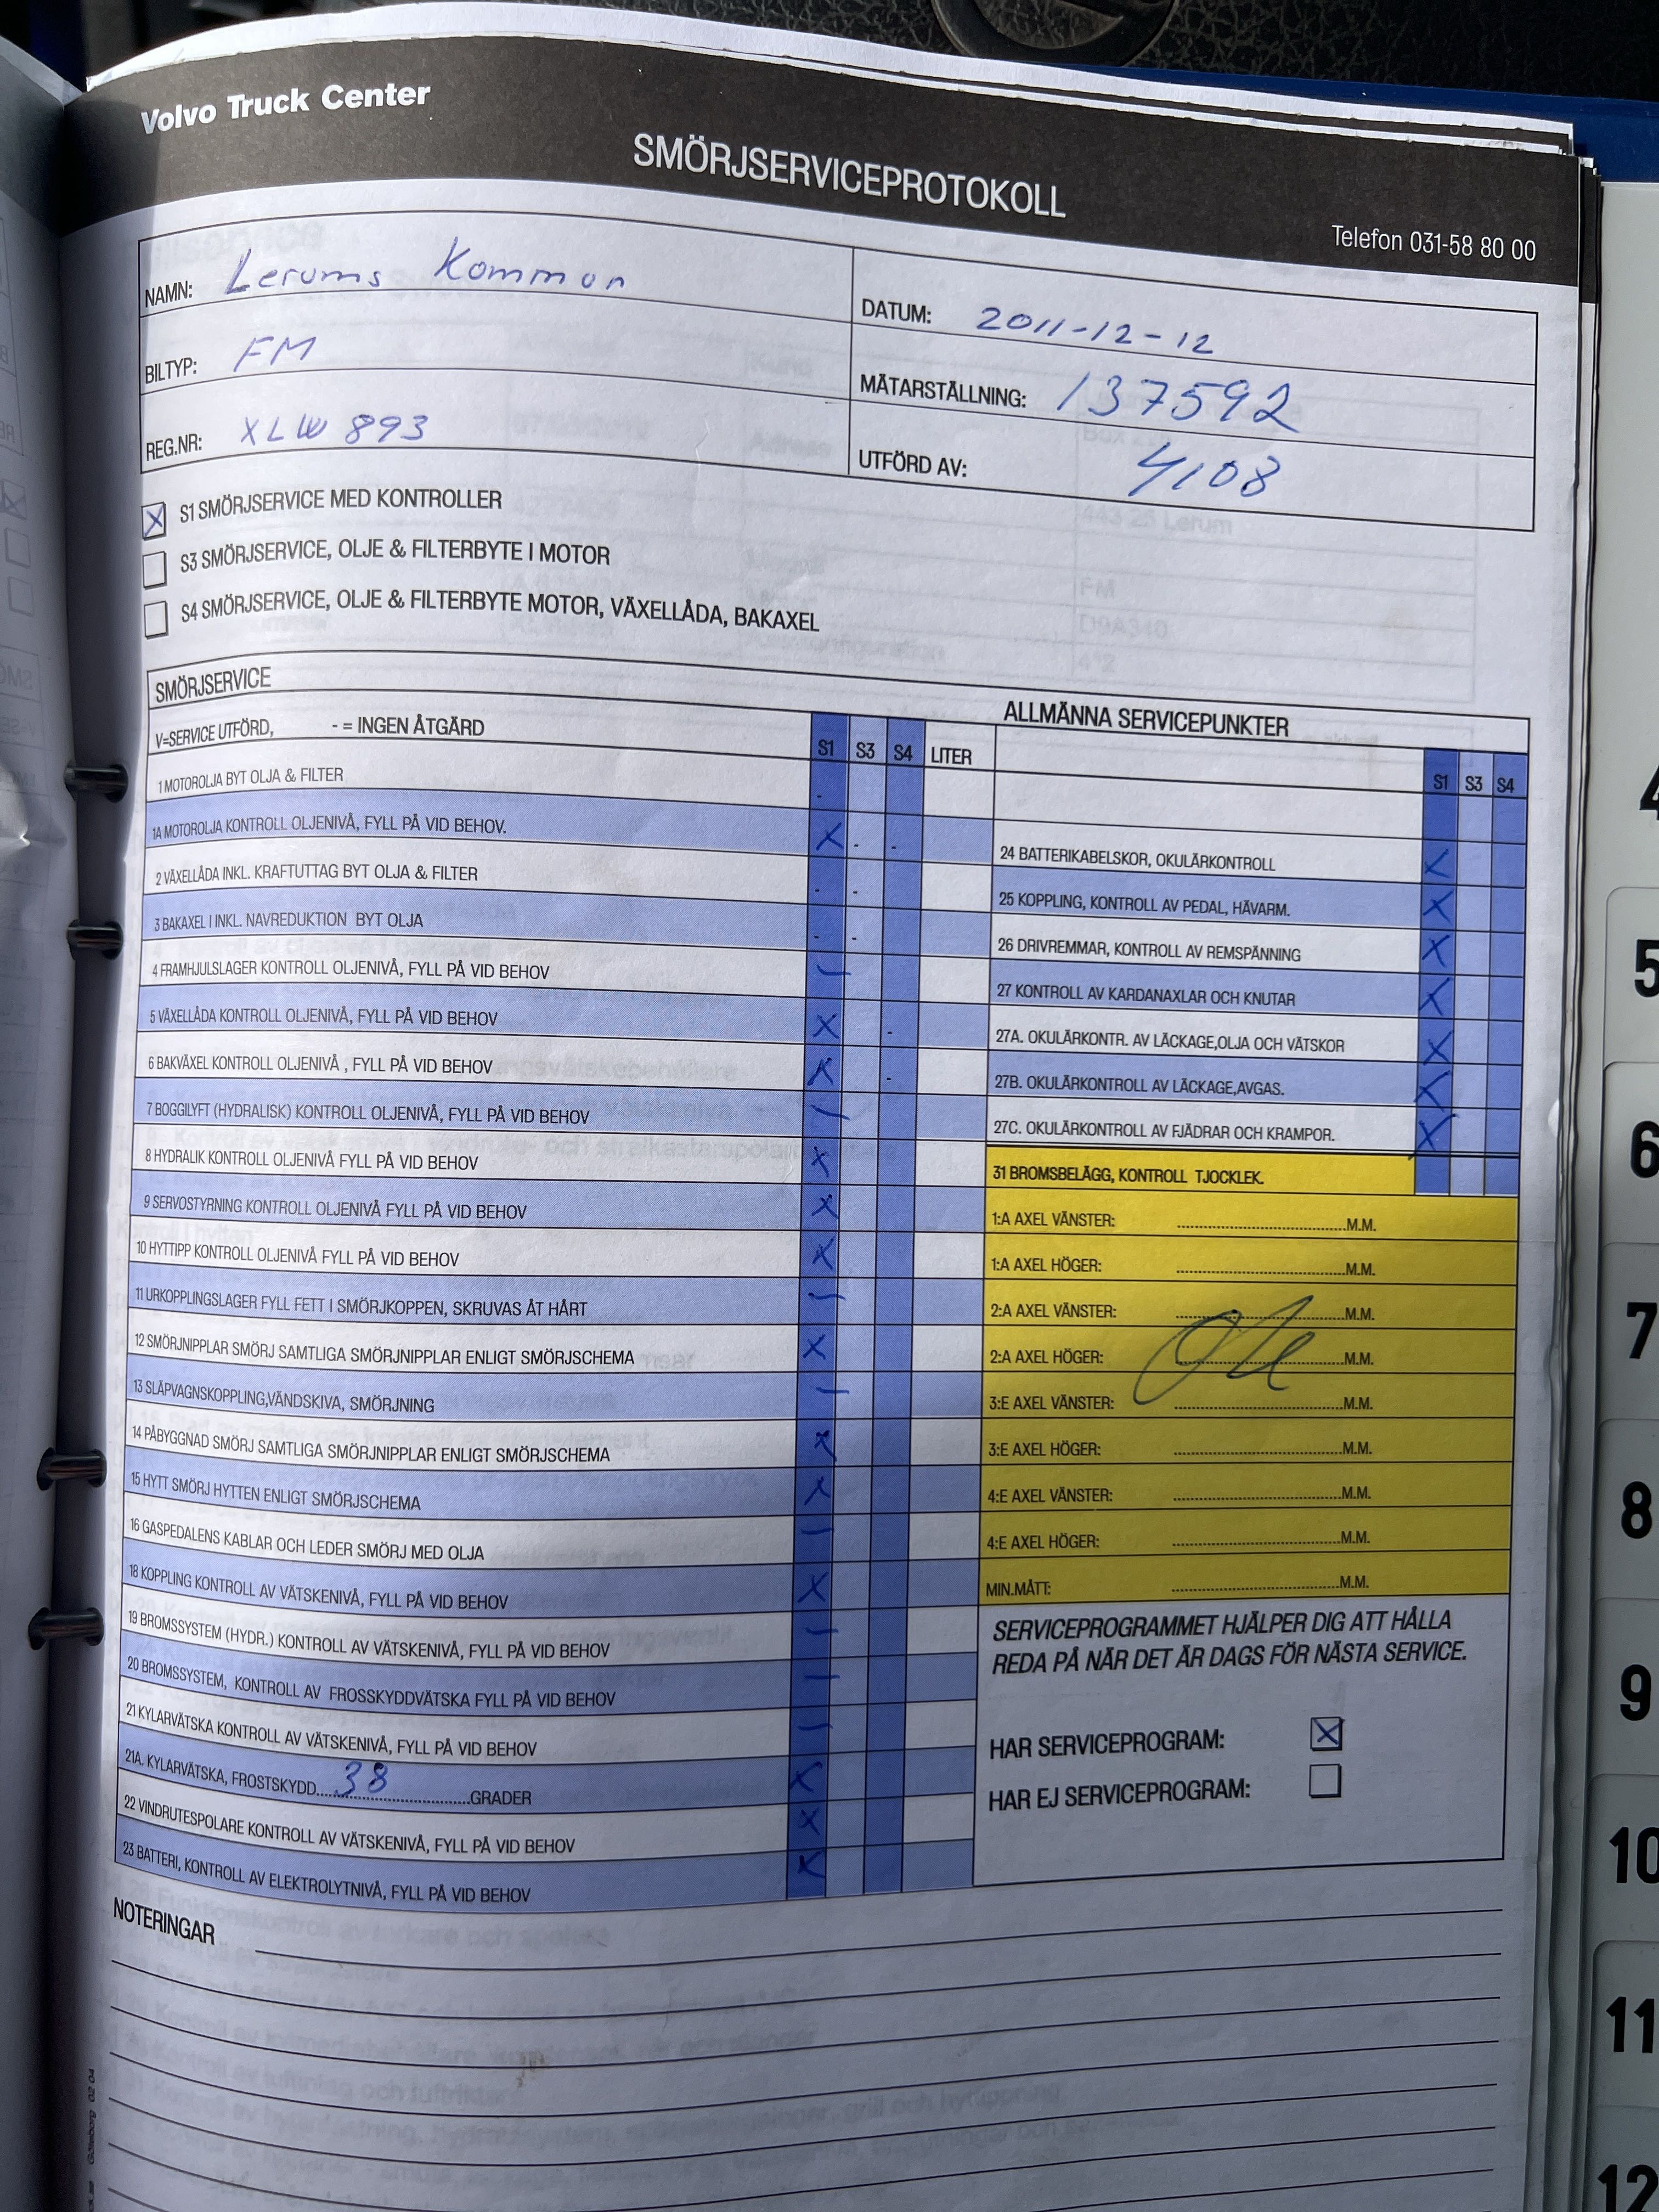 Volvo Truck Center
SMÖRJSERVICEPROTOKOLL
Telefon 031-58 80 00
NAMN: Lerums Kommun
BILTYP: FM
REG.NR: XLW 893
DATUM: 2011-12-12
MÄTARSTÄLLNING: 137592
UTFÖRD AV: 4108
X S1 SMÖRJSERVICE MED KONTROLLER
S3 SMÖRJSERVICE, OLJE & FILTERBYTE I MOTOR
S4 SMÖRJSERVICE, OLJE & FILTERBYTE MOTOR, VÄXELLÅDA, BAKAXEL
SMÖRJSERVICE
V=SERVICE UTFÖRD, - = INGEN ÅTGÄRD S1 S3 S4 LITER
1 MOTOROLJA BYT OLJA & FILTER -
1A MOTOROLJA KONTROLL OLJENIVÅ, FYLL PÅ VID BEHOV. X - -
2 VÄXELLÅDA INKL. KRAFTUTTAG BYT OLJA & FILTER - -
3 BAKAXEL I INKL. NAVREDUKTION BYT OLJA - -
4 FRAMHJULSLAGER KONTROLL OLJENIVÅ, FYLL PÅ VID BEHOV –
5 VÄXELLÅDA KONTROLL OLJENIVÅ, FYLL PÅ VID BEHOV X -
6 BAKVÄXEL KONTROLL OLJENIVÅ , FYLL PÅ VID BEHOV X -
7 BOGGILYFT (HYDRALISK) KONTROLL OLJENIVÅ, FYLL PÅ VID BEHOV –
8 HYDRALIK KONTROLL OLJENIVÅ FYLL PÅ VID BEHOV X
9 SERVOSTYRNING KONTROLL OLJENIVÅ FYLL PÅ VID BEHOV X
10 HYTTIPP KONTROLL OLJENIVÅ FYLL PÅ VID BEHOV X
11 URKOPPLINGSLAGER FYLL FETT I SMÖRJKOPPEN, SKRUVAS ÅT HÅRT –
12 SMÖRJNIPPLAR SMÖRJ SAMTLIGA SMÖRJNIPPLAR ENLIGT SMÖRJSCHEMA X
13 SLÄPVAGNSKOPPLING,VÄNDSKIVA, SMÖRJNING –
14 PÅBYGGNAD SMÖRJ SAMTLIGA SMÖRJNIPPLAR ENLIGT SMÖRJSCHEMA X
15 HYTT SMÖRJ HYTTEN ENLIGT SMÖRJSCHEMA X
16 GASPEDALENS KABLAR OCH LEDER SMÖRJ MED OLJA –
18 KOPPLING KONTROLL AV VÄTSKENIVÅ, FYLL PÅ VID BEHOV X
19 BROMSSYSTEM (HYDR.) KONTROLL AV VÄTSKENIVÅ, FYLL PÅ VID BEHOV –
20 BROMSSYSTEM, KONTROLL AV FROSSKYDDVÄTSKA FYLL PÅ VID BEHOV –
21 KYLARVÄTSKA KONTROLL AV VÄTSKENIVÅ, FYLL PÅ VID BEHOV –
21A. KYLARVÄTSKA, FROSTSKYDD....38....GRADER X
22 VINDRUTESPOLARE KONTROLL AV VÄTSKENIVÅ, FYLL PÅ VID BEHOV X
23 BATTERI, KONTROLL AV ELEKTROLYTNIVÅ, FYLL PÅ VID BEHOV X
ALLMÄNNA SERVICEPUNKTER
S1 S3 S4
24 BATTERIKABELSKOR, OKULÄRKONTROLL X
25 KOPPLING, KONTROLL AV PEDAL, HÄVARM. X
26 DRIVREMMAR, KONTROLL AV REMSPÄNNING X
27 KONTROLL AV KARDANAXLAR OCH KNUTAR X
27A. OKULÄRKONTR. AV LÄCKAGE,OLJA OCH VÄTSKOR X
27B. OKULÄRKONTROLL AV LÄCKAGE,AVGAS. X
27C. OKULÄRKONTROLL AV FJÄDRAR OCH KRAMPOR. X
31 BROMSBELÄGG, KONTROLL TJOCKLEK.
1:A AXEL VÄNSTER: ........M.M.
1:A AXEL HÖGER: ........M.M.
2:A AXEL VÄNSTER: ........M.M.
2:A AXEL HÖGER: ........M.M.
3:E AXEL VÄNSTER: ........M.M.
3:E AXEL HÖGER: ........M.M.
4:E AXEL VÄNSTER: ........M.M.
4:E AXEL HÖGER: ........M.M.
MIN.MÅTT: ........M.M.
SERVICEPROGRAMMET HJÄLPER DIG ATT HÅLLA
REDA PÅ NÄR DET ÄR DAGS FÖR NÄSTA SERVICE.
HAR SERVICEPROGRAM: X
HAR EJ SERVICEPROGRAM:
NOTERINGAR
4
5
6
7
8
9
10
11
12